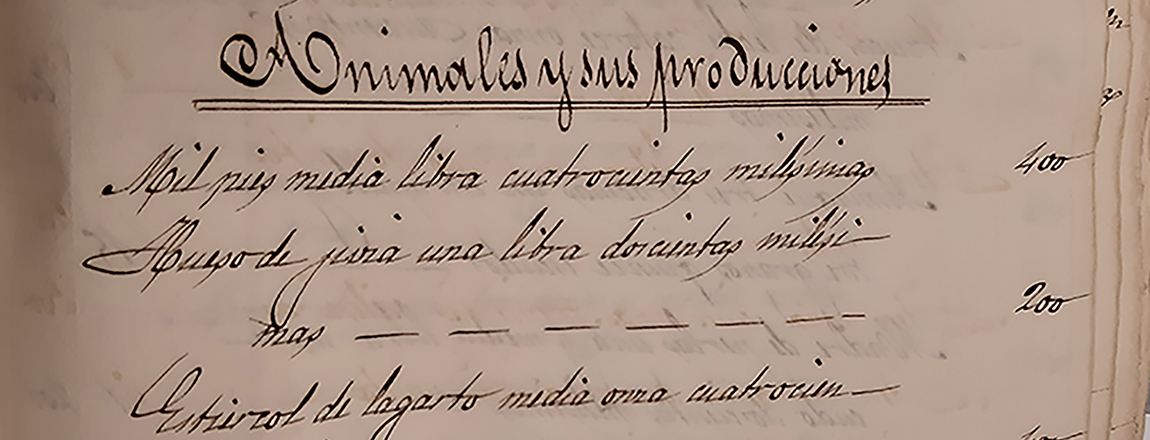 Animales y sus producciones
Mil pies media libra cuatrocientas milésimas 400
Hueso de jivia una libra dorcientas milési-
mas — — — — — — 200
Estiercol de lagarto media onza cuatrocien-